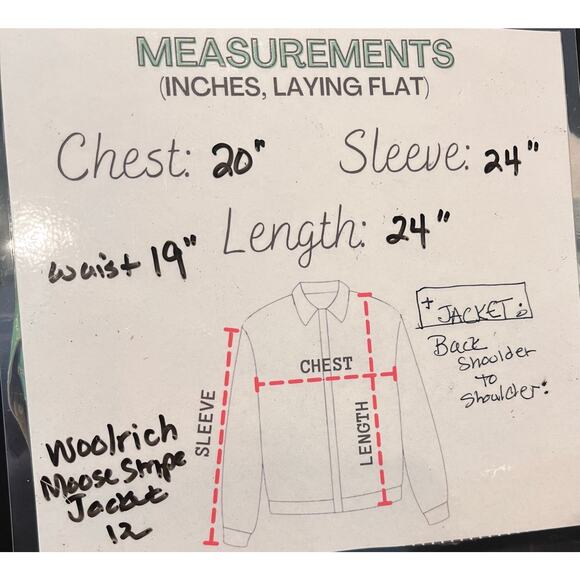 MEASUREMENTS
(INCHES, LAYING FLAT)
Chest: 20"
Sleeve: 24"
Length: 24"
Waist 19"
+ JACKET:
Back
Shoulder
to
Shoulder:
CHEST
SLEEVE
LENGTH
Woolrich
Moose Stripe
Jacket
12